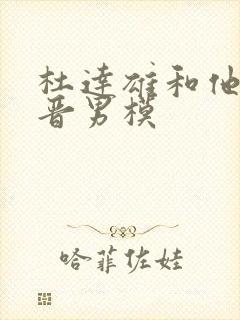 杜达雄和他
晋男模
哈菲佐娃